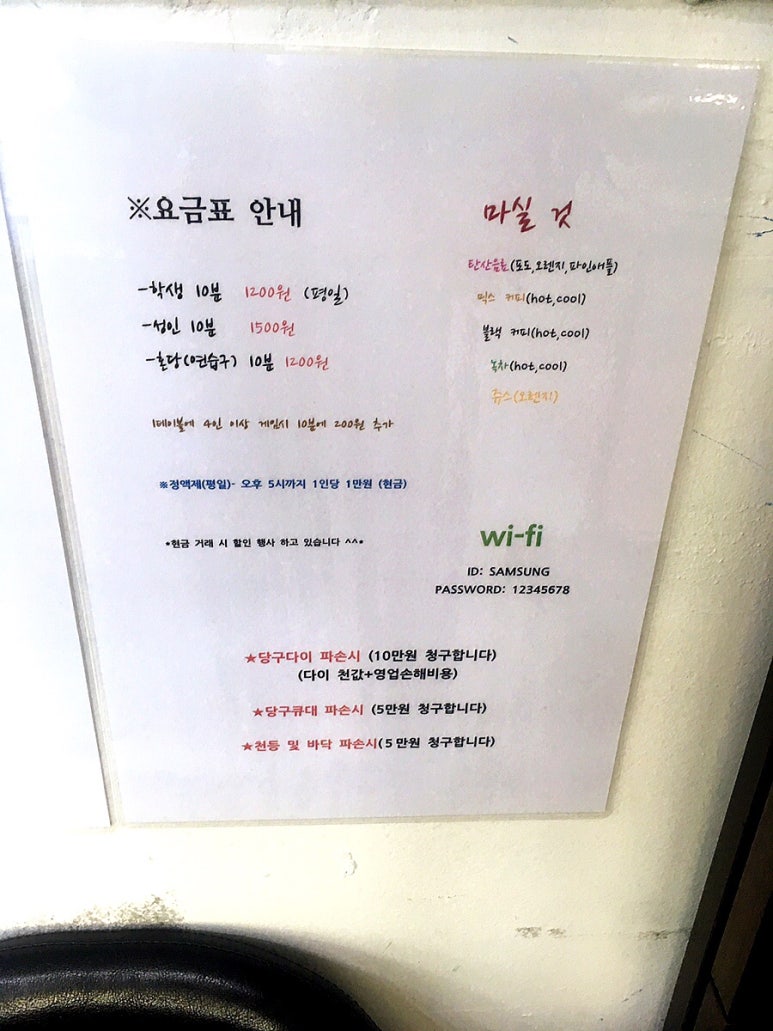 ※요금표 안내
-학생 10분 1200원 (평일)
-성인 10분 1500원
-혼당(연습구) 10분 1200원
1테이블에 4인 이상 게임시 10분에 200원 추가
※정액제(평일)- 오후 5시까지 1인당 1만원 (현금)
*현금 거래 시 할인 행사 하고 있습니다 ^^*
마실 것
탄산음료(포도,오렌지,파인애플)
믹스 커피(hot,cool)
블랙 커피(hot,cool)
녹차(hot,cool)
쥬스(오렌지)
wi-fi
ID: SAMSUNG
PASSWORD: 12345678
★당구다이 파손시 (10만원 청구합니다)
(다이 천값+영업손해비용)
★당구큐대 파손시 (5만원 청구합니다)
★천등 및 바닥 파손시(5만원 청구합니다)